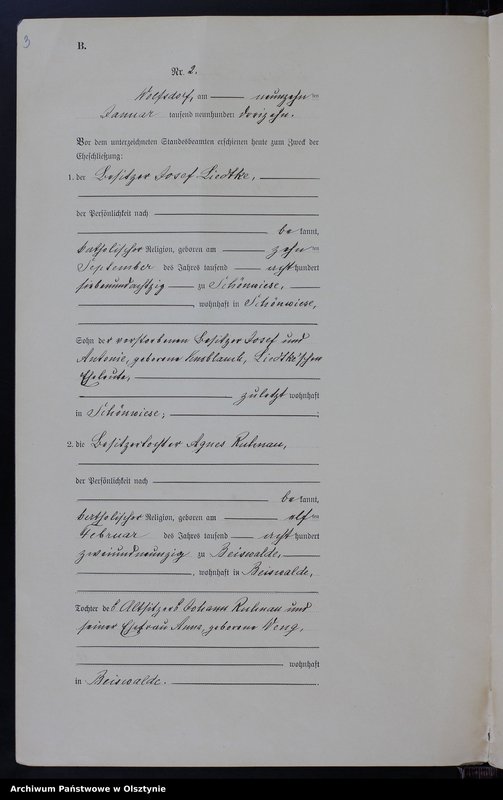 3
B.
Nr. 2.
Wolfsdorf, am neunzehn ten
Januar tausend neunhundert dreizehn.
Vor dem unterzeichneten Standesbeamten erschienen heute zum Zweck der
Eheschließung:
1. der Besitzer Josef Liedtke,
der Persönlichkeit nach
be kannt,
katholischer Religion, geboren am zehn ten
September des Jahres tausend acht hundert
siebenundachtzig zu Schönwiese,
, wohnhaft in Schönwiese,
Sohn der verstorbenen Besitzer Josef und
Antonie, geborene Knoblauch, Liedtke'schen
Eheleute,
zuletzt wohnhaft
in Schönwiese;
2. die Besitzertochter Agnes Ruhnau,
der Persönlichkeit nach
be kannt,
katholischer Religion, geboren am elf ten
Februar des Jahres tausend acht hundert
zweiundneunzig zu Beiswalde,
, wohnhaft in Beiswalde,
Tochter des Altsitzers Johann Ruhnau und
seiner Ehefrau Anna, geborene Weng,
wohnhaft
in Beiswalde.
Archiwum Państwowe w Olsztynie